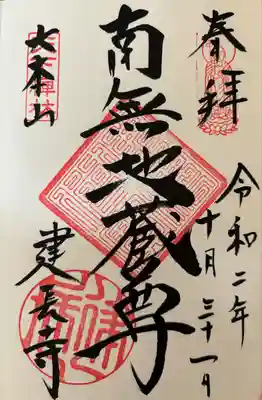 奉拝
令和二年
十月三十一日
南無地蔵尊
大本山
建長寺